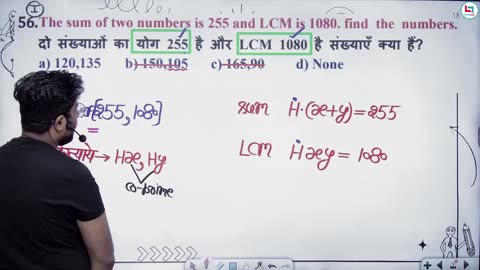 I
56. The sum of two numbers is 255 and LCM is 1080. find the numbers.
दो संख्याओं का योग 255 है और LCM 1080 है संख्याएँ क्या हैं?
a) 120,135 b) 150,105 c) 165,90 d) None
255, 1080]
→ Hx, Hy
co-prime
sum H·(x+y) = 255
LCM Hxy = 1080